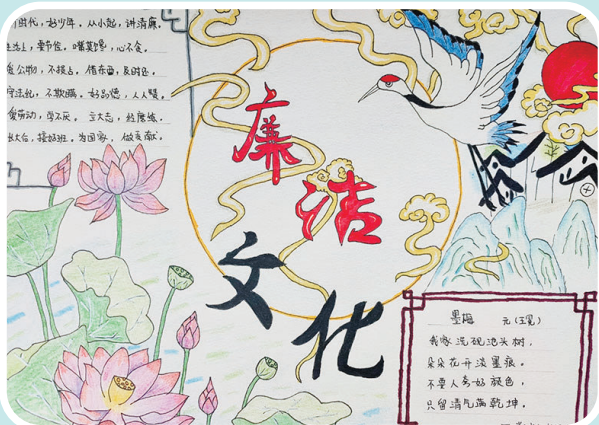 时代，好少年。从小起，讲清廉。
上，要节俭。嘴莫馋，心不贪。
公物，借东西，及时还。
守法纪，不欺瞒。好品德，人人赞。
劳动，学不厌。立大志，
接好班。为国家，做贡献。
廉洁
文化
墨梅 元(王冕)
我家洗砚池头树，
朵朵花开淡墨痕。
不要人夸好颜色，
只留清气满乾坤。